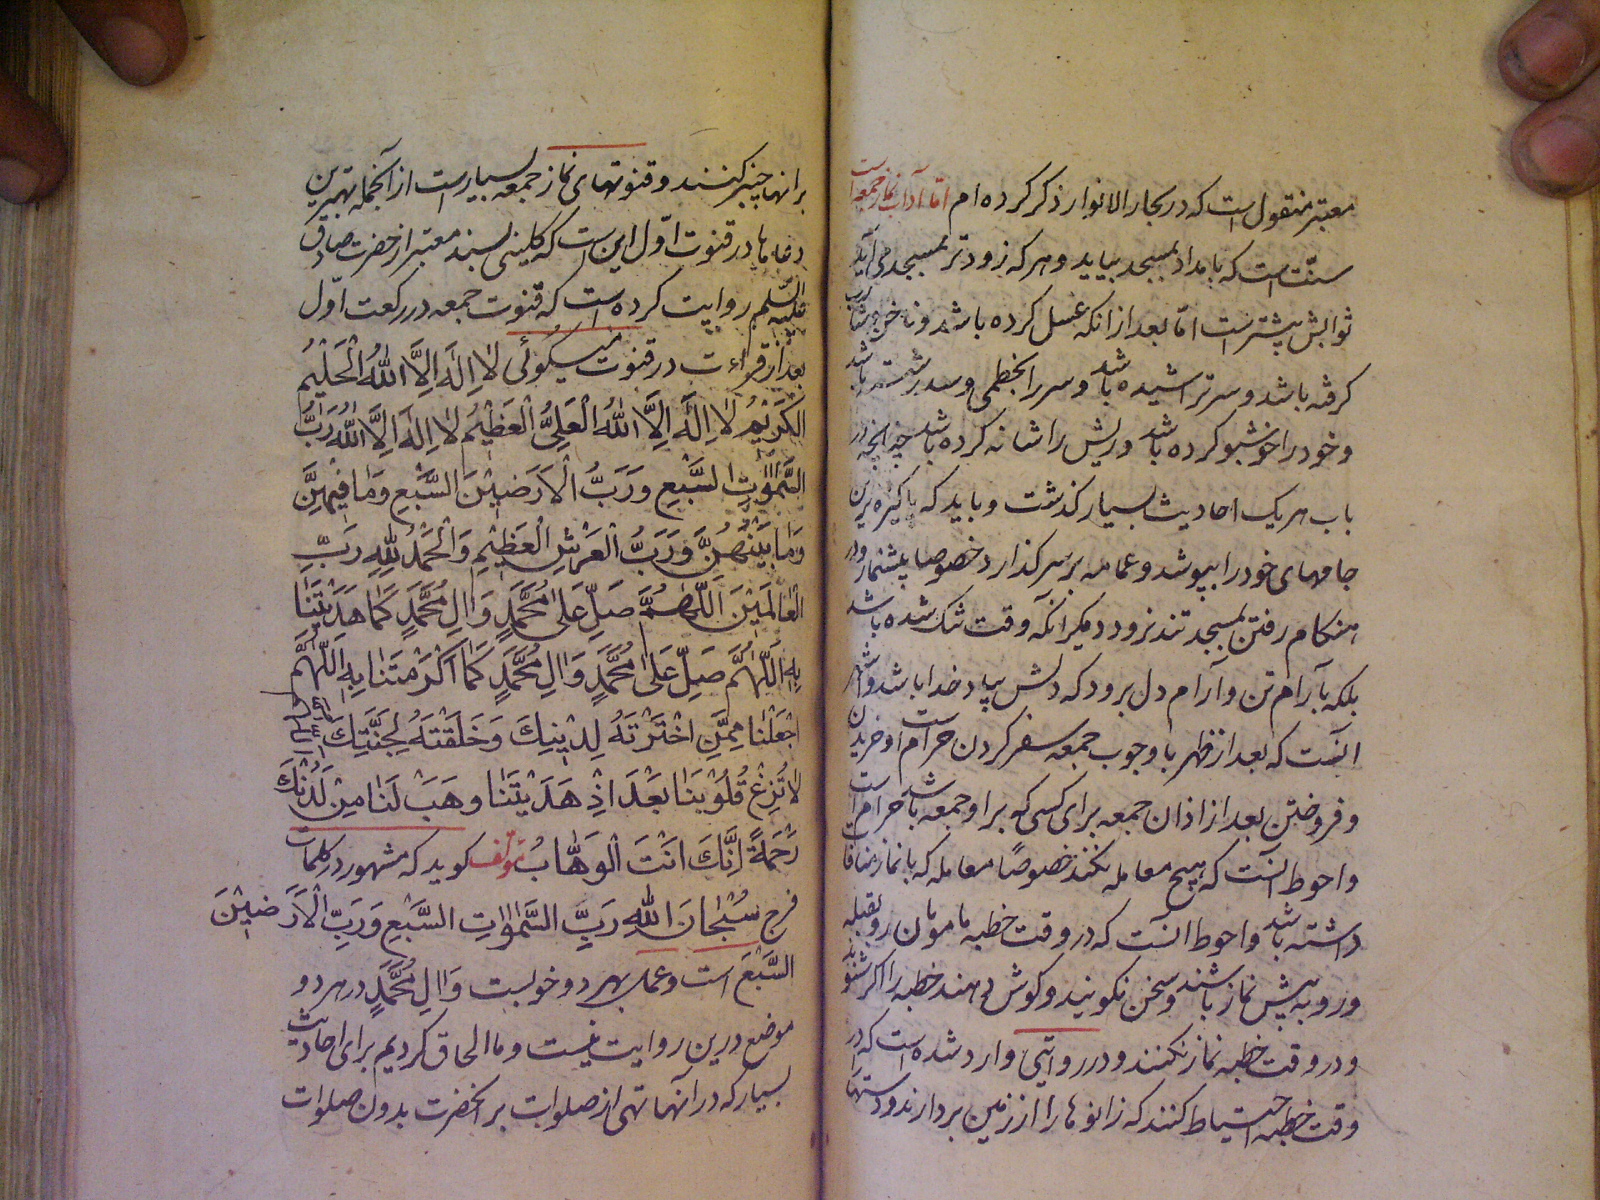 معتبر منقول است که در بحار الانوار ذکر کرده ام اما آداب نماز جمعه است
سنّت است که بامداد بمسجد بیاید و هر که زودتر بمسجد می آید
ثوابش بیشتر است امّا بعد از انکه غسل کرده باشد و ناخن و شارب
کرفته باشد و سر تراشیده باشد و سر را بخطمی و سدر شسته باشد
و خود را خوشبو کرده باشد و ریش را شانه کرده باشد چنانچه در
باب هر یک احادیث بسیار کذشت و باید که پاکیزه ترین
جامهای خود را بپوشد و عمامه بر سر کذارد خصوصا پیشنماز و در
هنکام رفتن بمسجد تند نرود مکر انکه وقت تنک شده باشد
بلکه بآرام تن و آرام دل برود که دلش بیاد خدا باشد و اشهر
انست که بعد از ظهر با وجوب جمعه سفر کردن حرام است و خریدن
و فروختن بعد از اذان جمعه برای کسی که بر او جمعه باشد حرام است
و احوط انست که هیچ معامله نکنند خصوصًا معامله که با نماز منافات
داشته باشد و احوط انست که در وقت خطبه مامومان رو بقبله
و رو به پیش نماز باشند و سخن نکویند و کوش دهند خطبه را اکر شنوند
و در وقت خطبه نماز نکنند و در روایتی وارد شده است که در
وقت خطبه احتیاط کنند که زانوها را از زمین بردارند و دستها
برانها چنبر کنند و قنوتهای نماز جمعه بسیار است از آنجمله بهترین
دعاها در قنوت اوّل این است که کلینی بسند معتبر از حضرت صادق
علیه السّلم روایت کرده است که قنوت جمعه در رکعت اوّل
بعد از قراءت در قنوت میکوئی لا اِلهَ اِلَّا اللّٰهُ الْحَلیْمُ
الْکَرَیْمُ لا اِلهَ اِلَّا اللّٰهُ الْعَلِیُّ الْعَظیْمُ لا اِلهَ اِلَّا اللّٰهُ رَبُّ
السَّمٰوٰتِ السَّبْعِ وَرَبُّ الْاَرَضیْنَ السَّبْعِ وَمٰا فیْهِنَّ
وَمٰا بَیْنَهُنَّ وَرَبُّ الْعَرْشِ الْعَظیْمِ وَالْحَمْدُ لِلّٰهِ رَبِّ
الْعٰالَمیْنَ اَللّٰهُمَّ صَلِّ عَلیٰ مُحَمَّدٍ وَاٰلِ مُحَمَّدٍ کَمٰا هَدَیْتَنٰا
بِهِ اَللّٰهُمَّ صَلِّ عَلیٰ مُحَمَّدٍ وَاٰلِ مُحَمَّدٍ کَمٰا اَکْرَمْتَنٰا بِهِ اَللّٰهُمَّ
اجْعَلْنٰا مِمَّنِ اخْتَرْتَهُ لِدیْنِكَ وَخَلَقْتَهُ لِجَنَّتِكَ اَللّٰهُمَّ
لٰا تُزِغْ قُلُوْبَنٰا بَعْدَ اِذْ هَدَیْتَنٰا وَهَبْ لَنٰا مِنْ لَدُنْكَ
رَحْمَةً اِنَّكَ اَنْتَ الْوَهّٰابُ مؤلّف کوید که مشهور در کلمات
فرج سُبْحٰانَ اللّٰهِ رَبِّ السَّمٰوٰاتِ السَّبْعِ وَرَبِّ الْاَرَضیْنَ
السَّبْعِ است و عمل بهر دو خوبست وَاٰلِ مُحَمَّدٍ در هر دو
موضع درین روایت نیست و ما الحاق کردیم برای احادیث
بسیار که در آنها نهی از صلوات بر انحضرت بدون صلوات